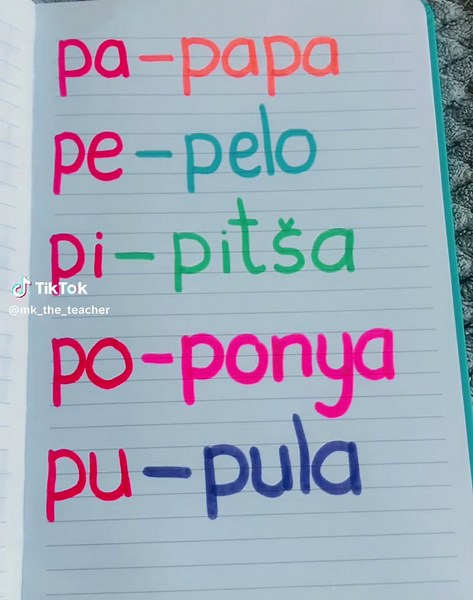 pa-papa
pe-pelo
pi-pitša
TikTok
@mk_the_teacher
po-ponya
pu-pula